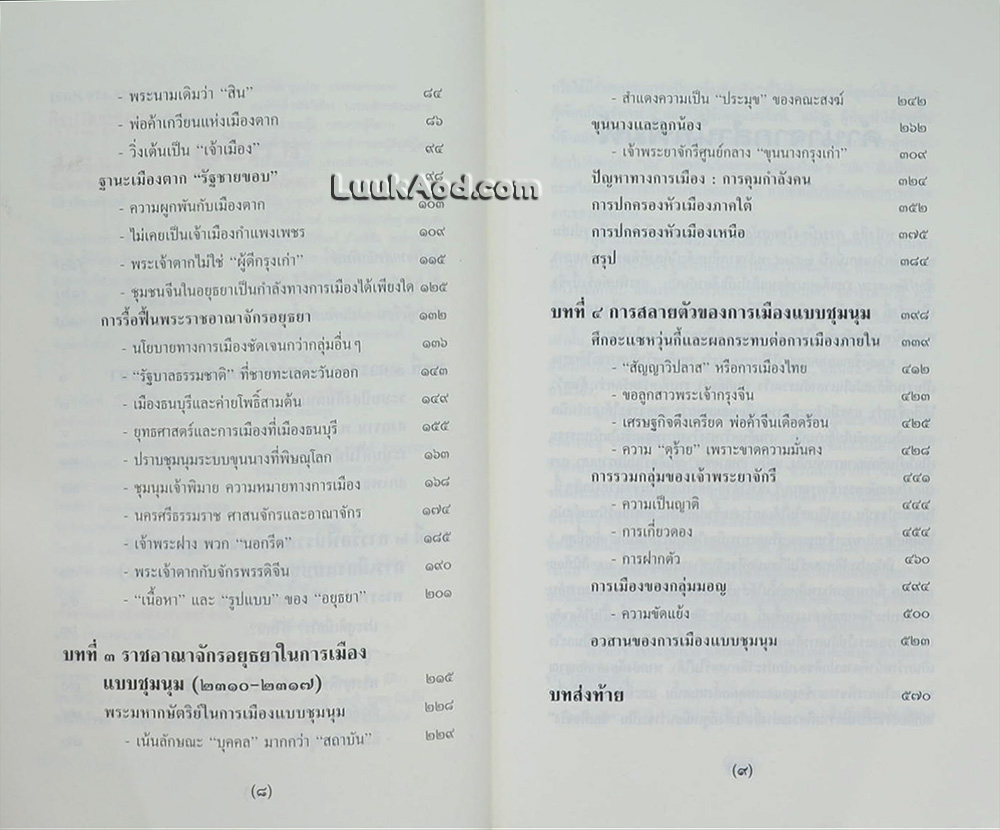 - พระนามเดิมว่า “สิน” ๘๔
- พ่อค้าเกวียนแห่งเมืองตาก ๘๖
- วิ่งเต้นเป็น “เจ้าเมือง” ๙๔
ฐานะเมืองตาก “รัฐชายขอบ” ๙๘
LuukAod.com
- ความผูกพันกับเมืองตาก ๑๐๓
- ไม่เคยเป็นเจ้าเมืองกำแพงเพชร ๑๐๙
- พระเจ้าตากไม่ใช่ “ผู้ดีกรุงเก่า” ๑๑๕
- ชุมชนจีนในอยุธยาเป็นกำลังทางการเมืองได้เพียงใด ๑๒๕
การรื้อฟื้นพระราชอาณาจักรอยุธยา ๑๓๒
- นโยบายทางการเมืองชัดเจนกว่ากลุ่มอื่นๆ ๑๓๖
- “รัฐบาลธรรมชาติ” ที่ชายทะเลตะวันออก ๑๔๓
- เมืองธนบุรีและค่ายโพธิ์สามต้น ๑๔๙
- ยุทธศาสตร์และการเมืองที่เมืองธนบุรี ๑๕๕
- ปราบชุมนุมระบบขุนนางที่พิษณุโลก ๑๖๓
- ชุมนุมเจ้าพิมาย ความหมายทางการเมือง ๑๖๘
- นครศรีธรรมราช ศาสนจักรและอาณาจักร ๑๗๔
- เจ้าพระฝาง พวก “นอกรีต” ๑๘๕
- พระเจ้าตากกับจักรพรรดิจีน ๑๙๐
- “เนื้อหา” และ “รูปแบบ” ของ “อยุธยา” ๒๐๑
บทที่ ๓ ราชอาณาจักรอยุธยาในการเมือง
แบบชุมนุม (๒๓๑๐-๒๓๑๗) ๒๑๕
พระมหากษัตริย์ในการเมืองแบบชุมนุม ๒๒๘
- เน้นลักษณะ “บุคคล” มากกว่า “สถาบัน” ๒๒๙
(๘)
- สำแดงความเป็น “ประมุข” ของคณะสงฆ์ ๒๔๒
ขุนนางและลูกน้อง ๒๖๒
- เจ้าพระยาจักรีศูนย์กลาง “ขุนนางกรุงเก่า” ๓๐๙
ปัญหาทางการเมือง : การคุมกำลังคน ๓๒๔
การปกครองหัวเมืองภาคใต้ ๓๕๒
การปกครองหัวเมืองเหนือ ๓๗๕
สรุป ๓๘๔
บทที่ ๔ การสลายตัวของการเมืองแบบชุมนุม ๓๙๘
ศึกอะแซหวุ่นกี้และผลกระทบต่อการเมืองภายใน ๓๓๙
- “สัญญาวิปลาส” หรือการเมืองไทย ๔๑๒
- ขอลูกสาวพระเจ้ากรุงจีน ๔๒๓
- เศรษฐกิจตึงเครียด พ่อค้าจีนเดือดร้อน ๔๒๕
- ความ “ดุร้าย” เพราะขาดความมั่นคง ๔๒๘
การรวมกลุ่มของเจ้าพระยาจักรี ๔๔๑
- ความเป็นญาติ ๔๔๔
- การเกี่ยวดอง ๔๕๔
- การฝากตัว ๔๖๐
การเมืองของกลุ่มมอญ ๔๙๔
- ความขัดแย้ง ๕๐๐
อวสานของการเมืองแบบชุมนุม ๕๒๓
บทส่งท้าย ๕๗๐
(๙)